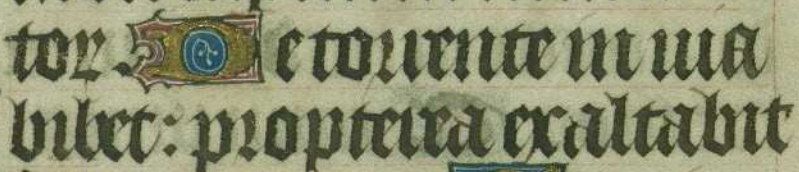 tor. De torrente in uia
bibet: propterea exaltabit